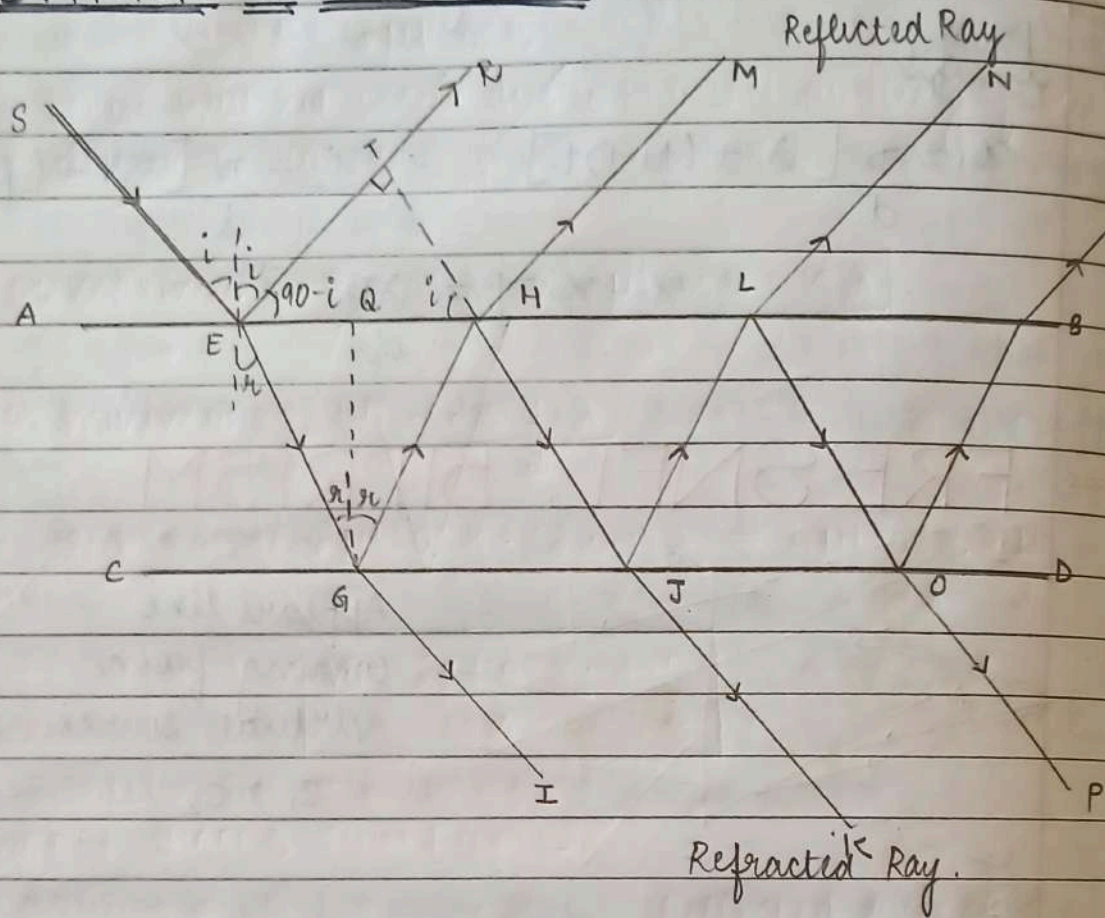 Reflected Ray
R M N
S
T
i i
90-i Q i H L
A B
E
r
r r
C D
G J O
I P
K
Refracted Ray.